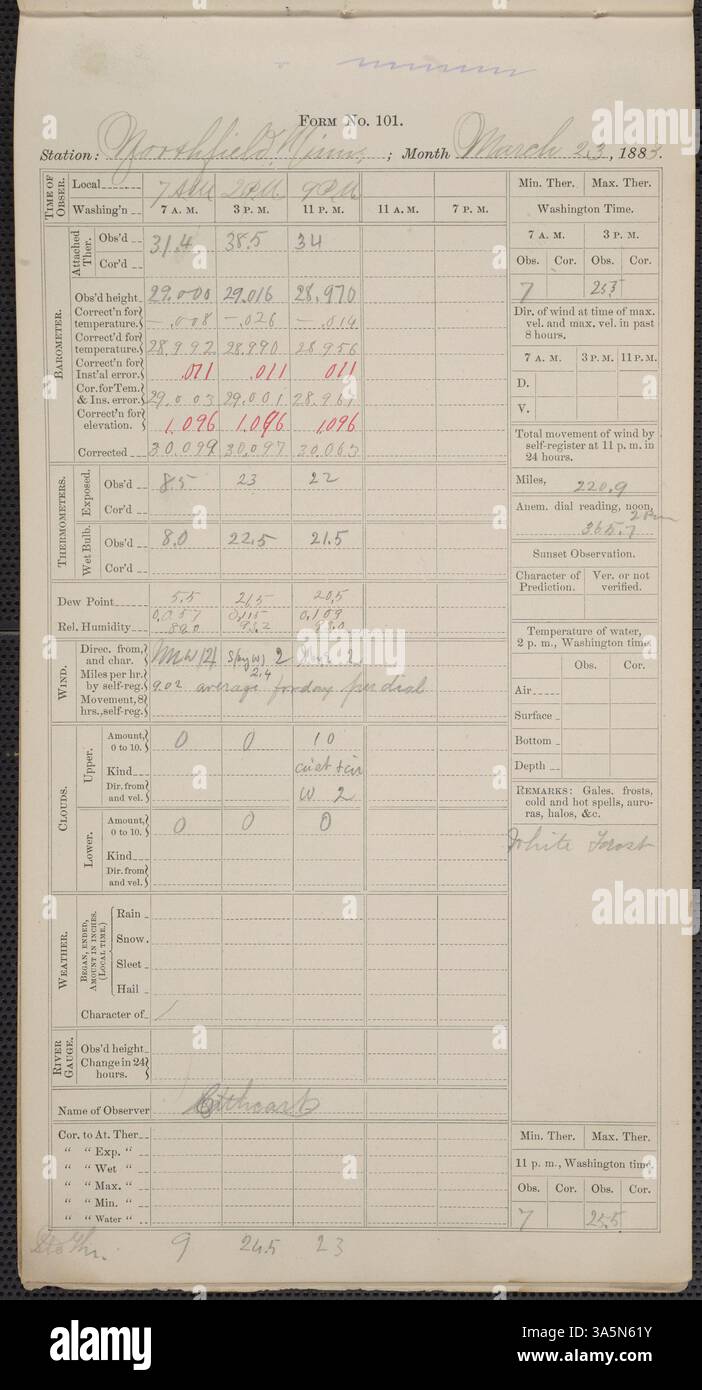 FORM No. 101.
Station: Northfield, Minn, ; Month March 23, 1883.
TIME OF OBSER.
Local 7 AM 2 P.M 9 P.M
Washing'n 7 A. M. 3 P. M. 11 P. M. 11 A. M. 7 P. M.
BAROMETER.
Attached Ther.
Obs'd 31.4 38.5 34
Cor'd
Obs'd height 29.000 29.016 28.970
Correct'n for temperature. -.008 -.026 -.014
Correct'd for temperature. 28.992 28.990 28.956
Correct'n for Inst'al error. .011 .011 .011
Cor. for Tem. & Ins. error. 29.003 29.001 28.967
Correct'n for elevation. 1.096 1.096 1.096
Corrected 30.099 30.097 30.063
THERMOMETERS.
Exposed.
Obs'd 8.5 23 22
Cor'd
Wet Bulb.
Obs'd 8.0 22.5 21.5
Cor'd
Dew Point 5.5 21.5 20.5
0.057 0.115 0.109
Rel. Humidity 89.0 93.2
WIND.
Direc. from, and char. 2
Miles per hr. by self-reg. 2.4
9.02 average for day per dial
Movement, 8 hrs., self-reg.
CLOUDS.
Upper.
Amount, 0 to 10. 0 0 10
Kind
Dir. from and vel. W 2
Lower.
Amount, 0 to 10. 0 0 0
Kind
Dir. from and vel.
WEATHER.
BEGAN, ENDED, AMOUNT IN INCHES. (LOCAL TIME.)
Rain
Snow.
Sleet
Hail
Character of
RIVER GAUGE.
Obs'd height
Change in 24 hours.
Name of Observer Cathcart
Cor. to At. Ther
" " Exp. "
" " Wet "
" " Max. "
" " Min. "
" " Water "
9 24.5 23
Min. Ther. Max. Ther.
Washington Time.
7 A. M. 3 P. M.
Obs. Cor. Obs. Cor.
7 25.5
Dir. of wind at time of max. vel. and max. vel. in past 8 hours.
7 A. M. 3 P. M. 11 P. M.
D.
V.
Total movement of wind by self-register at 11 p. m. in 24 hours.
Miles, 220.9
Anem. dial reading, noon, 2 P.m
365.7
Sunset Observation.
Character of Prediction. Ver. or not verified.
Temperature of water, 2 p. m., Washington time.
Obs. Cor.
Air
Surface
Bottom
Depth
REMARKS: Gales, frosts, cold and hot spells, auroras, halos, &c.
White Frost
Min. Ther. Max. Ther.
11 p. m., Washington time.
Obs. Cor. Obs. Cor.
7 25.5
alamy
Image ID: 3A5N61Y
www.alamy.com